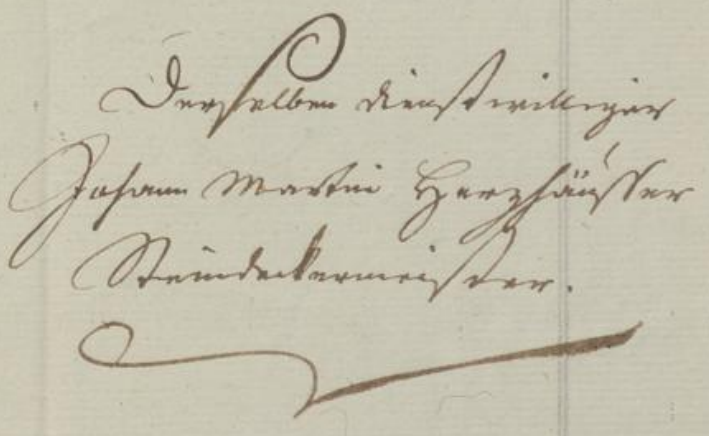 Derselben dienstwilliger
Johann Martin Herzhäusser
Steindeckermeister.